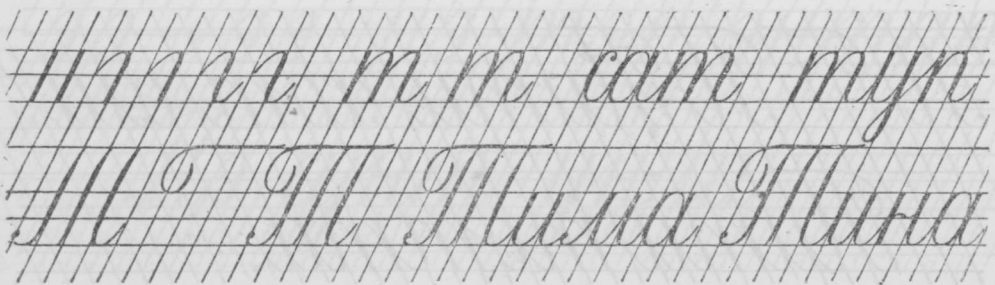 т т сат туп
Т Тима Тина